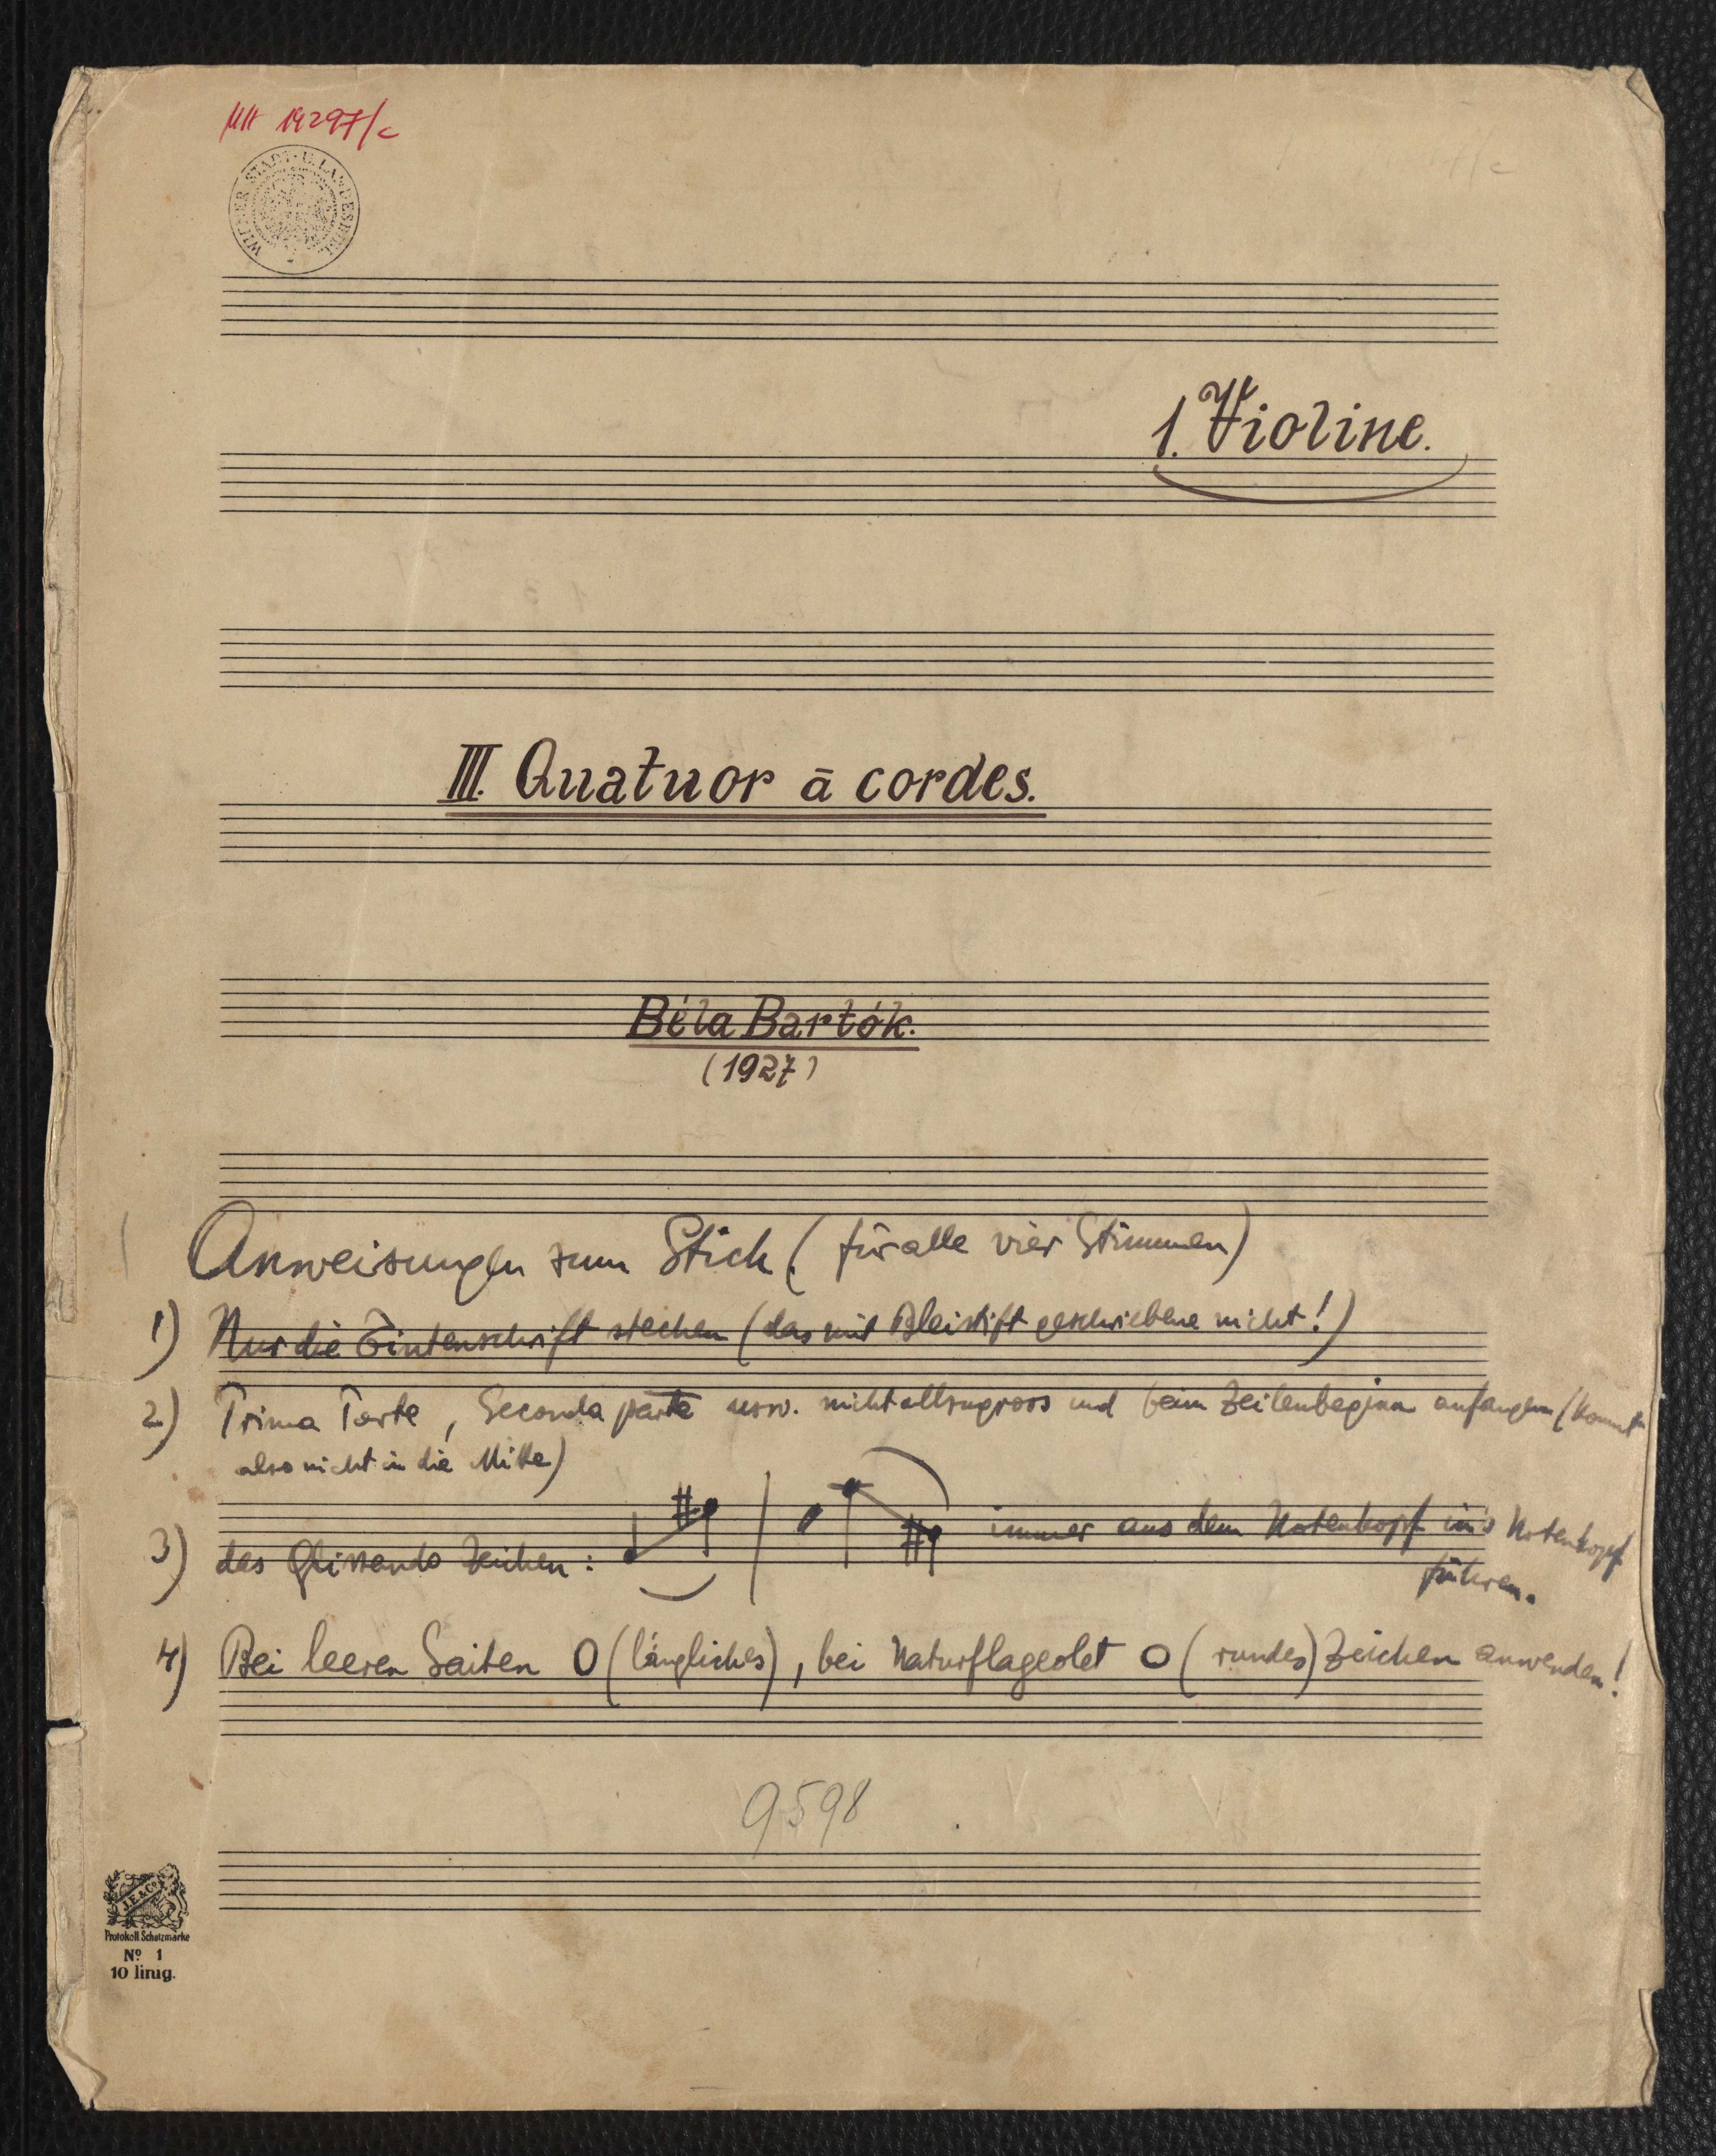 MH 19297/c
WIENER STADT- U. LANDESBIBL.
1. Violine.
III. Quatuor à cordes.
Béla Bartók.
(1927)
Anweisungen zum Stich. (für alle vier Stimmen)
1) Nur die Tintenschrift stechen (das mit Bleistift geschriebene nicht!)
2) Prima Parte, Seconda parte usw. nicht allzugross und beim Zeilenbeginn anfangen (kommt
also nicht in die Mitte)
3) das Glissando Zeichen: immer aus dem Notenkopf in's Notenkopf
führen.
4) Bei leeren Saiten O (längliches), bei Naturflageolet O (rundes) Zeichen anwenden!
9598
J.E. & Co.
Protokoll. Schutzmarke
No. 1
10 linig.